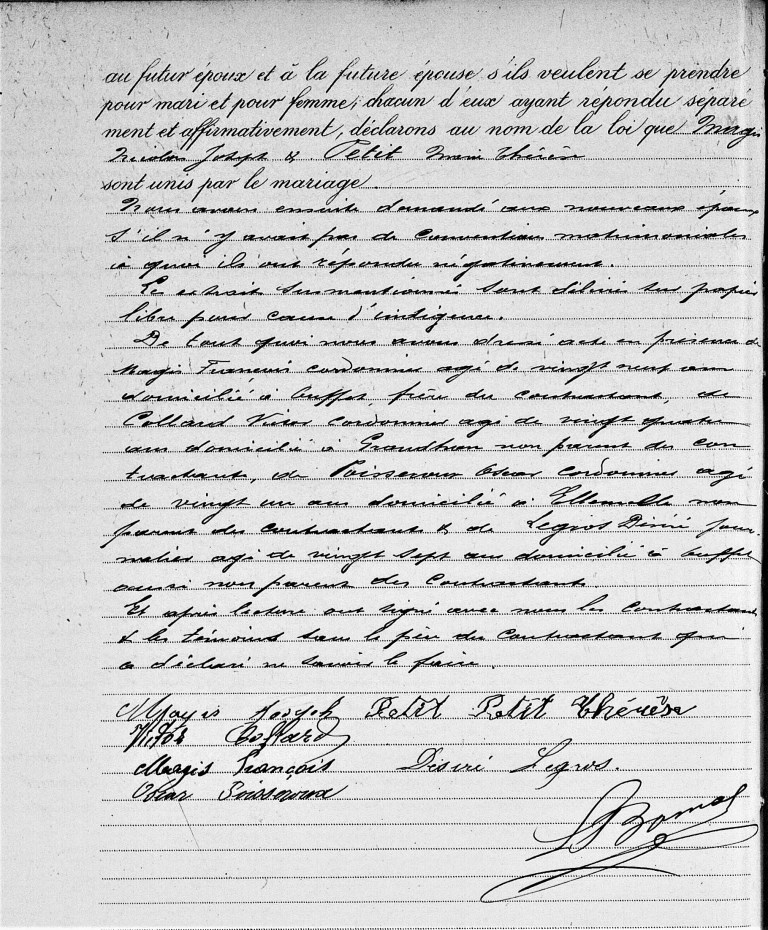 au futur époux et à la future épouse s'ils veulent se prendre
pour mari et pour femme; chacun d'eux ayant répondu séparé
ment et affirmativement, déclarons au nom de la loi que Magis
Nicolas Joseph & Petit Marie Thérèse
sont unis par le mariage.
Nous avons ensuite demandé aux nouveaux époux
s'il n'y avait pas de conventions matrimoniales
à quoi ils ont répondu négativement.
Les extraits susmentionnés sont délivrés sur papier
libre pour cause d'indigence.
De tout quoi nous avons dressé acte en présence de
Magis François cordonnier agé de vingt neuf ans
domicilié à Buffet, frère du contractant, de
Collard Victor cordonnier agé de vingt quatre
ans domicilié à Grandhan non parent des con
tractants, de Poisseroux Oscar cordonnier agé
de vingt un ans domicilié à non
parent des contractants & de Legros Désiré jour
nalier agé de vingt sept ans domicilié à Buffet
aussi non parent des contractants.
Et après lecture ont signé avec nous les contractants
& les témoins sauf le père du contractant qui
a déclaré ne savoir le faire.
Magis Joseph Petit Petit Thérèse
Victor Collard
Magis François Désiré Legros.
Oscar Poisseroux